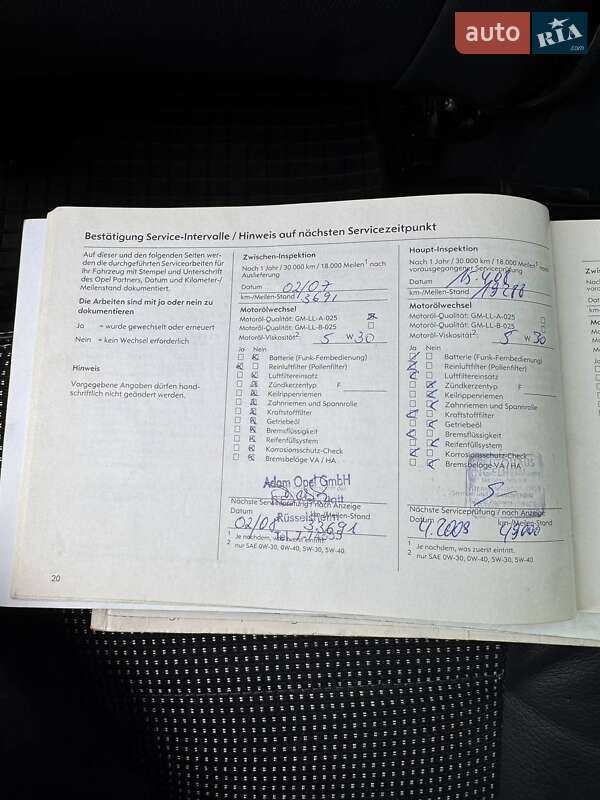 auto RIA .com
Bestätigung Service-Intervalle / Hinweis auf nächsten Servicezeitpunkt
Auf dieser und den folgenden Seiten wer-
den die durchgeführten Servicearbeiten für
Ihr Fahrzeug mit Stempel und Unterschrift
des Opel Partners, Datum und Kilometer-/
Meilenstand dokumentiert.
Die Arbeiten sind mit ja oder nein zu
dokumentieren
Ja = wurde gewechselt oder erneuert
Nein = kein Wechsel erforderlich
Hinweis
Vorgegebene Angaben dürfen hand-
schriftlich nicht geändert werden.
20
Zwischen-Inspektion
Nach 1 Jahr / 30.000 km / 18.000 Meilen¹ nach
Auslieferung
Datum 02/07
km-/Meilen-Stand 3691
Motorölwechsel
Motoröl-Qualität: GM-LL-A-025
Motoröl-Qualität: GM-LL-B-025
Motoröl-Viskosität² 5 W 30
Ja Nein
Batterie (Funk-Fernbedienung)
Reinluftfilter (Pollenfilter)
Luftfiltereinsatz
Zündkerzentyp F
Keilrippenriemen
Zahnriemen und Spannrolle
Kraftstofffilter
Getriebeöl
Bremsflüssigkeit
Reifenfüllsystem
Korrosionsschutz-Check
Bremsbeläge VA / HA
Adam Opel GmbH
Nächste Serviceprüfung / nach Anzeige
Rüsselsheim
Datum km-/Meilen-Stand
02/08 33691
¹ Je nachdem, was zuerst eintritt.
² nur SAE 0W-30, 0W-40, 5W-30, 5W-40.
Haupt-Inspektion
Nach 1 Jahr / 30.000 km / 18.000 Meilen¹ nach
vorausgegangener Serviceprüfung
Datum 15.4.08
km-/Meilen-Stand
Motorölwechsel
Motoröl-Qualität: GM-LL-A-025
Motoröl-Qualität: GM-LL-B-025
Motoröl-Viskosität² 5 W 30
Ja Nein
Batterie (Funk-Fernbedienung)
Reinluftfilter (Pollenfilter)
Luftfiltereinsatz
Zündkerzentyp F
Keilrippenriemen
Zahnriemen und Spannrolle
Kraftstofffilter
Getriebeöl
Bremsflüssigkeit
Reifenfüllsystem
Korrosionsschutz-Check
Bremsbeläge VA / HA
Nächste Serviceprüfung / nach Anzeige
Datum km-/Meilen-Stand
4.2009 49000
¹ Je nachdem, was zuerst eintritt.
² nur SAE 0W-30, 0W-40, 5W-30, 5W-40.